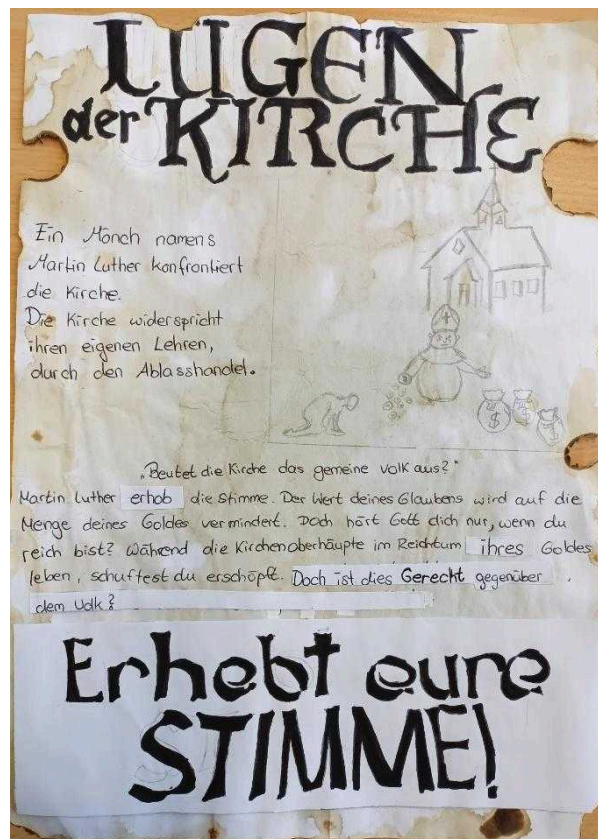 LÜGEN
der KIRCHE
Ein Mönch namens
Martin Luther konfrontiert
die Kirche.
Die Kirche widerspricht
ihren eigenen Lehren,
durch den Ablasshandel.
$ $ $
„Beutet die Kirche das gemeine Volk aus?“
Martin Luther erhob die Stimme. Der Wert deines Glaubens wird auf die
Menge deines Goldes vermindert. Doch hört Gott dich nur, wenn du
reich bist? Während die Kirchenoberhäupte im Reichtum ihres Goldes
leben, schuftest du erschöpft. Doch ist dies Gerecht gegenüber
dem Volk?
Erhebt eure
STIMME!